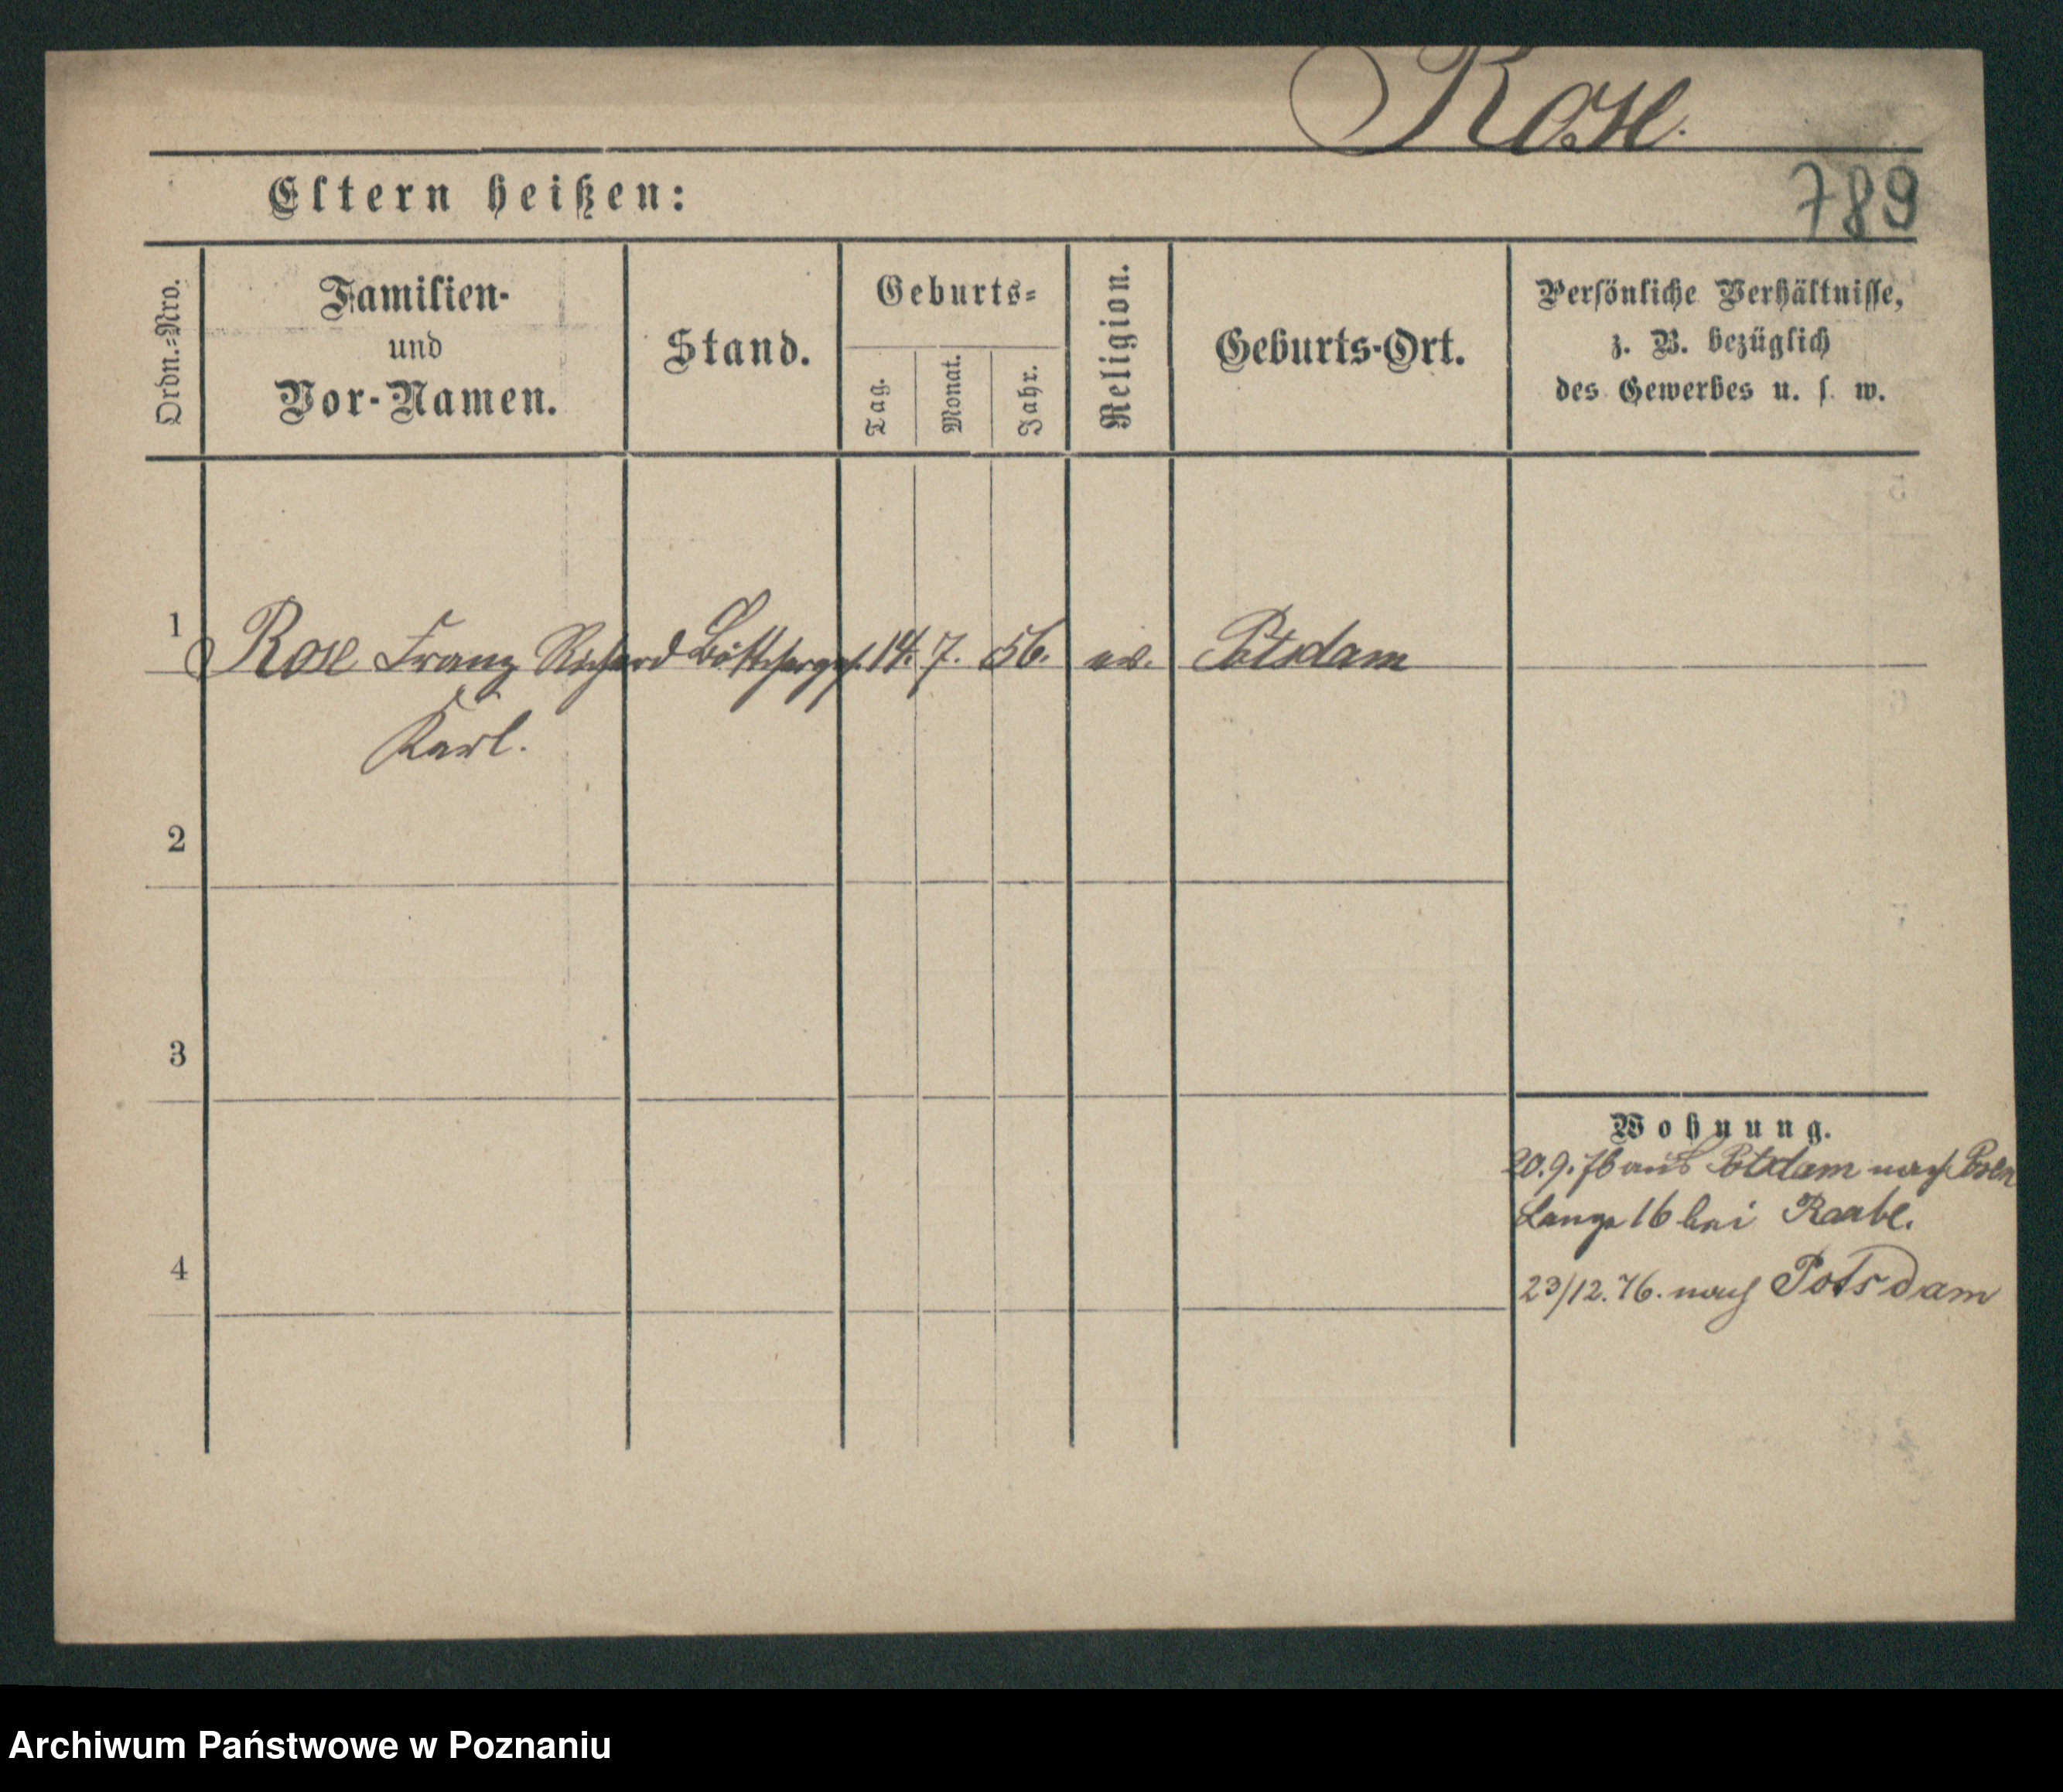 Rose.
789
Eltern heißen:
Ordn.-Nro.
Familien-
und
Vor-Namen.
Stand.
Geburts-
Tag.
Monat.
Jahr.
Religion.
Geburts-Ort.
Persönliche Verhältnisse,
z. B. bezüglich
des Gewerbes u. s. w.
1 Rose Franz Richard Böttcherges. 14. 7. 56. ev. Potsdam
Karl.
2
3
4
Wohnung.
20.9.76 aus Potsdam nach Posen
Lange 16 bei Raabe.
23/12.76. nach Potsdam
Archiwum Państwowe w Poznaniu